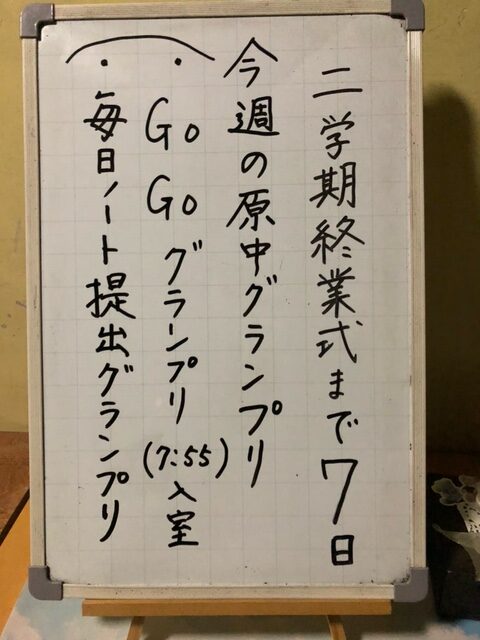 二学期終業式まで7日
今週の原中グランプリ
・Go Go グランプリ (7:55)入室
・毎日ノート提出グランプリ